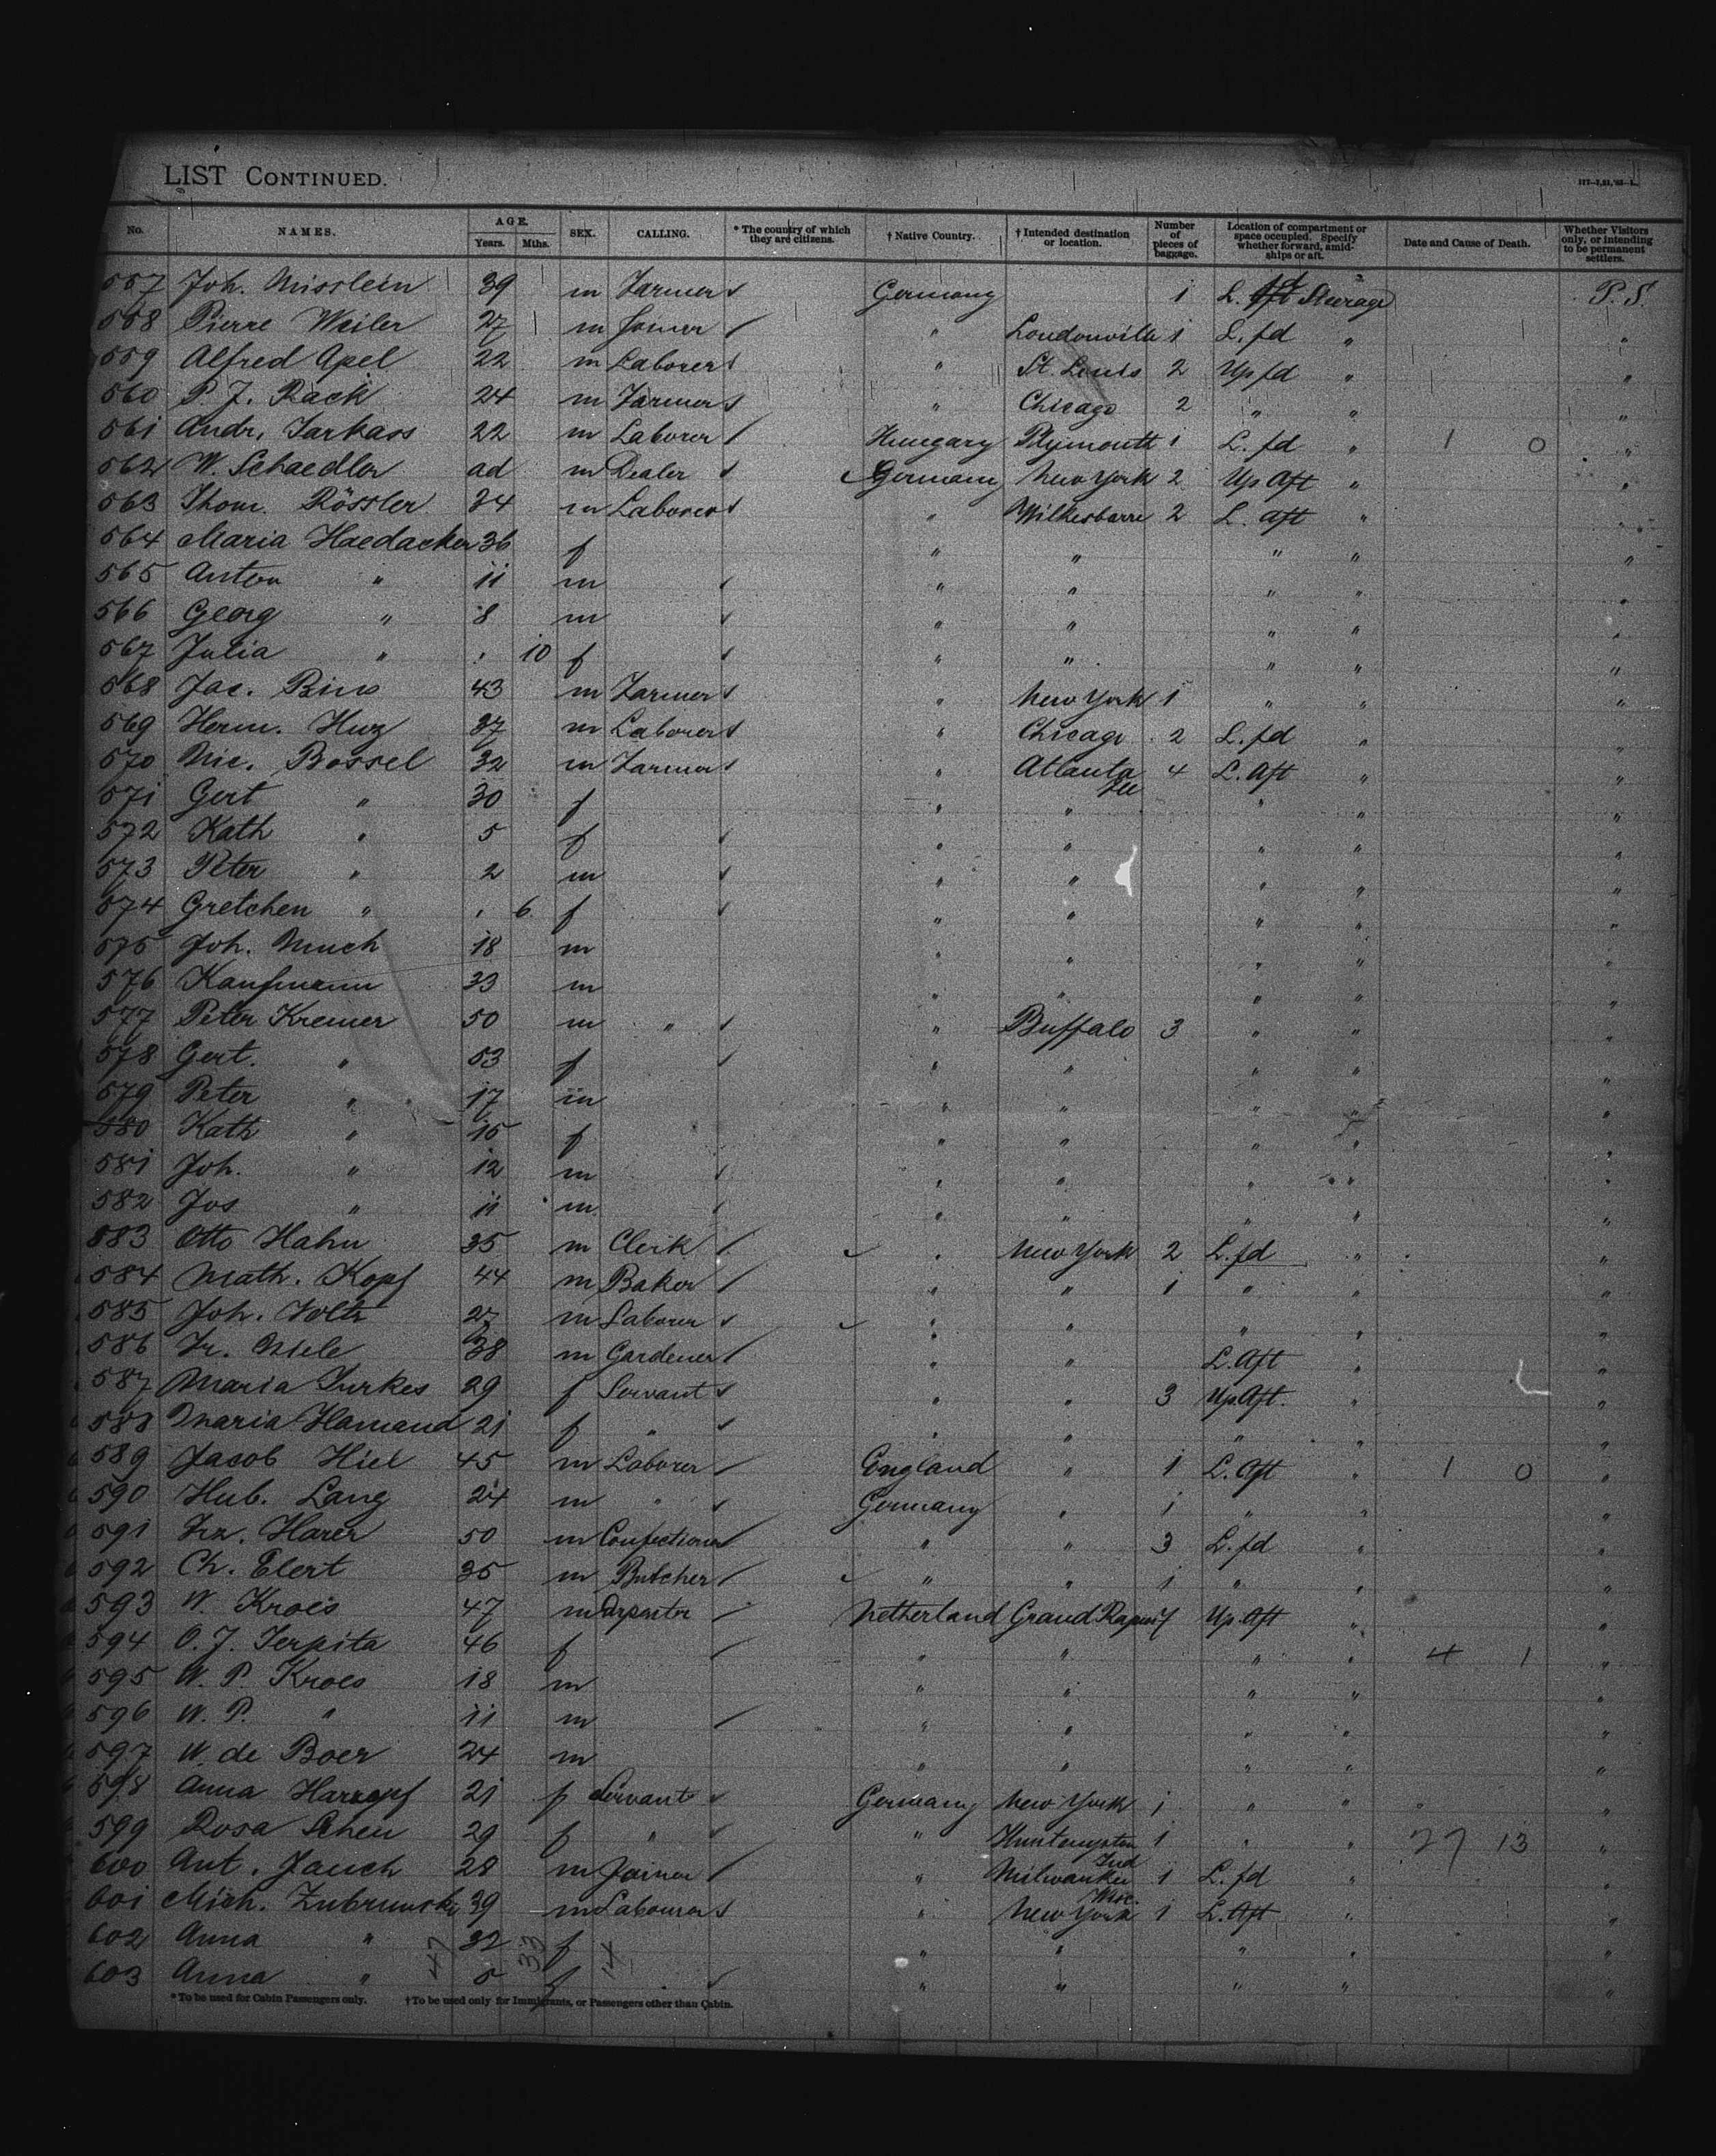 LIST CONTINUED.
No. NAMES. AGE. Years. Mths. SEX. CALLING. * The country of which they are citizens. † Native Country. † Intended destination or location. Number of pieces of baggage. Location of compartment or space occupied. Specify whether forward, amidships or aft. Date and Cause of Death. Whether Visitors only, or intending to be permanent settlers.
557 Joh. Misslein 39 m Farmer Germany 1 L. Steerage P.S.
558 Pierre Weiler 27 m Joiner " Loudonville 1 L. fd " "
559 Alfred Apel 22 m Laborer " St. Louis 2 Up fd " "
560 P. J. Rack 24 m Farmer " Chicago 2 " " "
561 Andr. Farkass 22 m Laborer Hungary Plymouth 1 L. fd " 1 0 "
562 W. Schaedler ad m Dealer Germany New York 2 Up Aft " "
563 Thom. Rössler 34 m Laborer " Wilkesbarre 2 L. aft " "
564 Maria Haedacker 36 f " " " " "
565 Anton " 11 m " " " " "
566 Georg " 8 m " " " " "
567 Julia " 10 f " " " " "
568 Jac. Bins 43 m Farmer " New York 1 " " "
569 Herm. Huz 37 m Laborer " Chicago 2 L. fd " "
570 Nic. Bossel 32 m Farmer " Atlanta 4 L. Aft " "
571 Gert " 30 f " " " " "
572 Kath " 5 f " " " " "
573 Peter " 2 m " " " " "
574 Gretchen " 6 f " " " " "
575 Joh. Much 18 m " " " " "
576 Kaufmann 33 m " " " " "
577 Peter Kremer 50 m " " Buffalo 3 " " "
578 Gert. " 53 f " " " " "
579 Peter " 17 m " " " " "
580 Kath " 15 f " " " " "
581 Joh. " 12 m " " " " "
582 Jos " 11 m " " " " "
583 Otto Hahn 35 m Clerk " New York 2 L. fd " "
584 Math. Kopf 44 m Baker " " 1 " " "
585 Joh. Foltz 27 m Laborer " " " " "
586 Fr. Miele 38 m Gardener " " L. Aft " "
587 Maria Turkes 29 f Servant " " 3 Up. Aft. " "
588 Maria Hamand 21 f " " " " " "
589 Jacob Hiel 45 m Laborer England " 1 L. Aft " 1 0 "
590 Hub. Lang 24 m " Germany " 1 " " "
591 Frz. Harer 50 m Confectioner " " 3 L. fd " "
592 Ch. Elert 35 m Butcher " " 1 " " "
593 W. Kroes 47 m Carpenter Netherland Grand Rapids 7 Up. Aft " "
594 O. J. Terpsta 46 f " " " " 4 1 "
595 W. P. Kroes 18 m " " " " "
596 W. P. " 11 m " " " " "
597 W. de Boer 24 m " " " " "
598 Anna Harzopf 21 f Servant Germany New York 1 " " "
599 Rosa Scheu 29 f " " Huntington Ind 1 " " 27 13 "
600 Ant. Jauch 28 m Joiner " Milwaukee Wisc. 1 L. fd " "
601 Mich. Zubrunski 39 m Labourer " New York 1 L. Aft " "
602 Anna " 32 f " " " " "
603 Anna " 5 f " " " " "
47 33 14
* To be used for Cabin Passengers only. † To be used only for Immigrants, or Passengers other than Cabin.